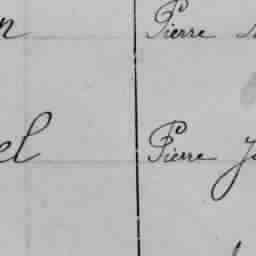 n Pierre
el Pierre